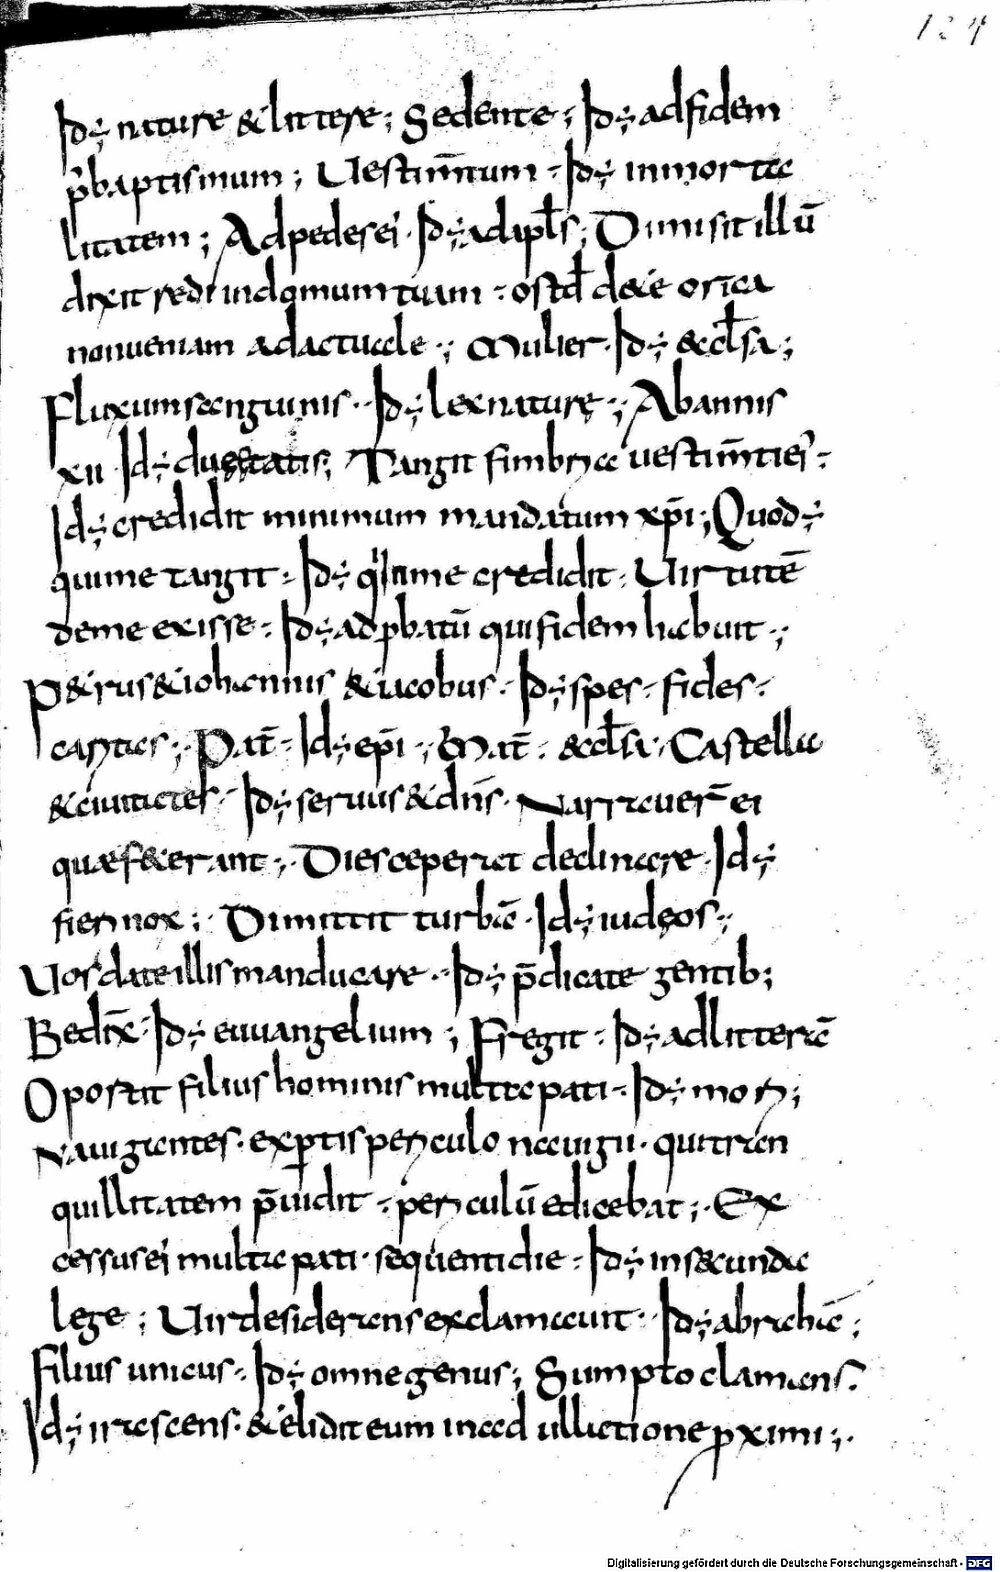 124
Id÷ nature & litterę; Sedente; Id÷ ad fidem
p̄ baptismum; Uestim̄tum · Id÷ inmorta
litatem; Ad pedes ei · Id÷ ad apl̄s; Dimisit illū
dixit redi in domum tuam ÷ ostd̄
non ueniam adactu; Mulier · Id÷ eccl̄sa;
Fluxum sanguinis · Id÷ lex naturę; Ab annis
xii · Id÷ Tangit fimbria uestim̄ti eī
Id÷ credidit minimum mandatum xp̄i; Quod÷
qui me tangit · Id÷ me credidit · Uirtutē
de me exisse · Id÷ ad p̱batū qui fidem habuit;
P&rus & iohannis & iacobus · Id÷ spes · fides ·
caritas; Pat̄ · Id÷ ep̄i; Mat̄ · eccl̄sa · Castella
& ciuitates · Id÷ seruus & dn̄s · Narrauer̄ ei
quæ fecerant; Dies ceperat declinare · Id÷
fieri nox; Dimittit turbā · Id÷ iudęos;
Uos date illis manducare · Id÷ p̄dicate gentib;
Bedix̄ · Id÷ euuangelium; Fregit · Id÷ ad litterā
Oportit filius hominis multa pati · Id÷ mori;
Nauigantes · exp̱tis periculo nauigii ·
p̄uidit · periculū edicebat; Ex
cessus ei multa pati · sequenti die · Id÷ in secunda
lege; Uir desiderans exclamauit · Id÷ abrahā;
Filius unicus · Id÷ omne genus; Sumpto clamans ·
Id÷ irascens · & elidit eum p̱ximi;
Digitalisierung gefördert durch die Deutsche Forschungsgemeinschaft - DFG